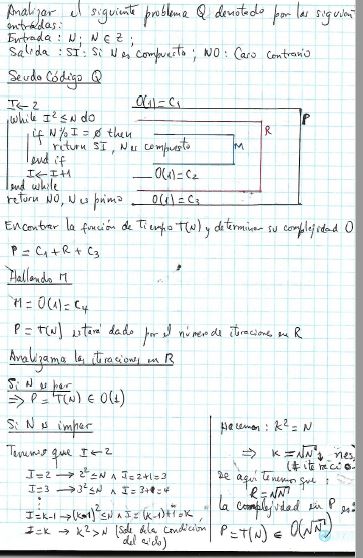 Analizar el siguiente problema Q denotado por las siguien
entradas:
Entrada : N; N ∈ Z ;
Salida : SI: Si N es compuesto ; NO: Caso contrario
Seudo Código Q
I ← 2 O(1) = C1
P
while I² ≤ N do
if N % I = ø then
R
return SI, N es compuesto
M
end if
I ← I+1 O(1) = C2
end while
return NO, N es primo O(1) = C3
Encontrar la función de Tiempo T(N) y determinar su complejidad O
P = C1 + R + C3
Hallando M
M = O(1) = C4
P = T(N) estará dado por el número de iteraciones en R
Analizamo las iteraciones en R
Si N es par
⇒ P = T(N) ∈ O(1)
Si N es impar
Tenemos que I ← 2
I=2 → 2² ≤ N ∧ I = 2+1 = 3
I=3 → 3² ≤ N ∧ I = 3+1 = 4
⋮
I=k-1 → (k-1)² ≤ N ∧ I = (k-1)+1 = k
I=k → k² > N (Sale de la condición
del ciclo)
Hacemos: k² = N
⇒ k = √N
(# iteracio
de aquí tenemos que :
R = √N
la complejidad en P es:
P = T(N) ∈ O(√N)